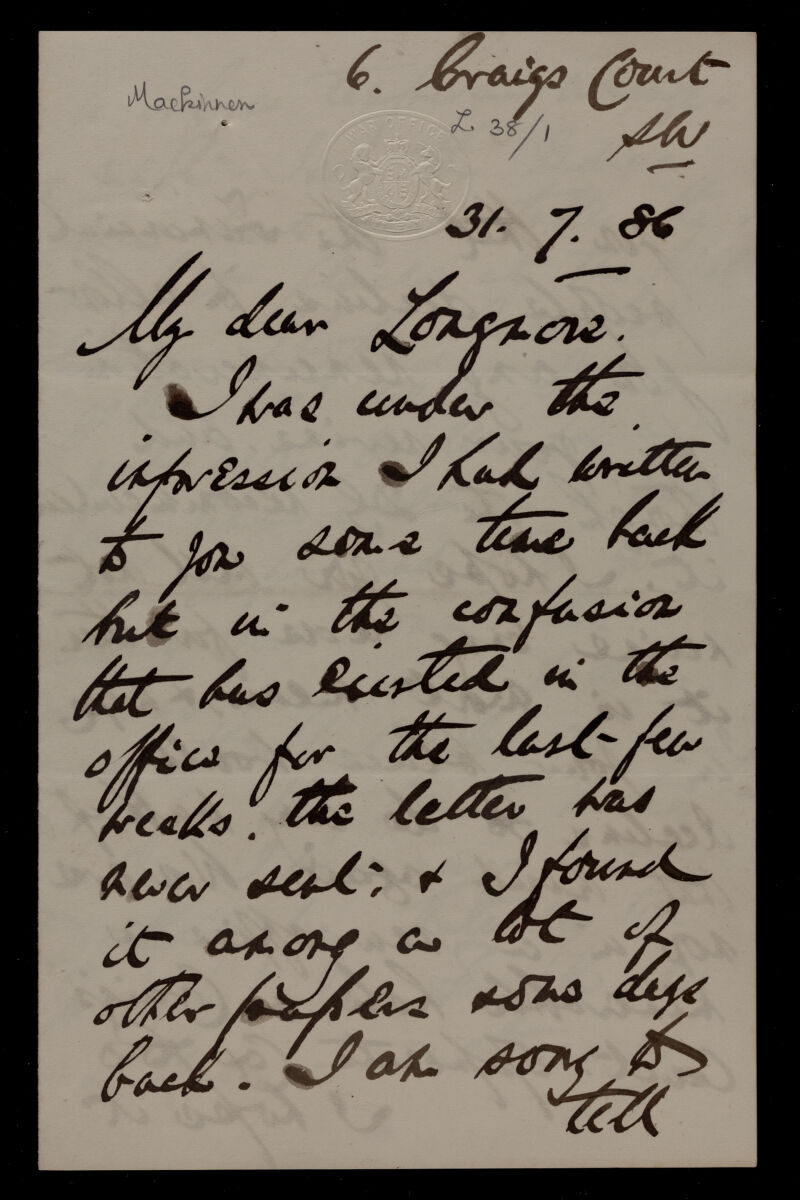 6. Craigs Court
Mackinnon
WAR OFFICE
L 38/1
SW
31. 7. 86
My dear Longmore.
I was under the
impression I had written
to you some time back
but in the confusion
that has existed in the
office for the last few
weeks. the letter was
never sent; & I found
it among a lot of
other papers some days
back. I am sorry to
tell